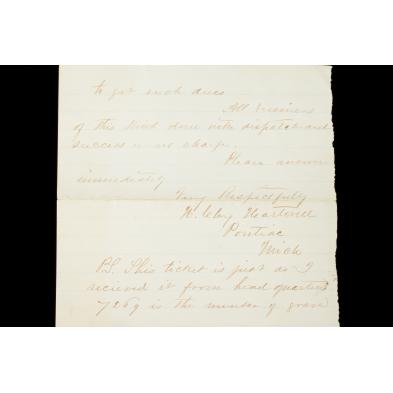 to get such dues
All business
of this kind done with dispatch and
success or no charge.
Please answer
immediately
Very Respectfully
H. Clay Hartwell
Pontiac
Mich
P.S. This ticket is just as I
recieved it form head quarters
7269 is the number of grave